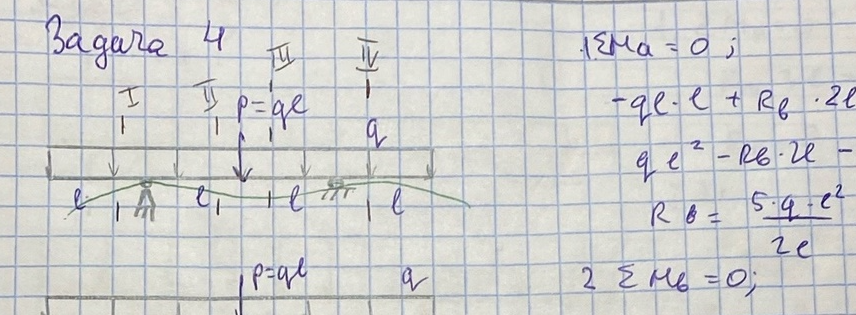 Задача 4
I II III IV
P=ql
q
l l l l
P=ql q
1 ΣMa = 0;
-ql·l + Rb·2l
ql² - Rb·2l -
Rb = 5·q·l² / 2l
2 ΣMb = 0;